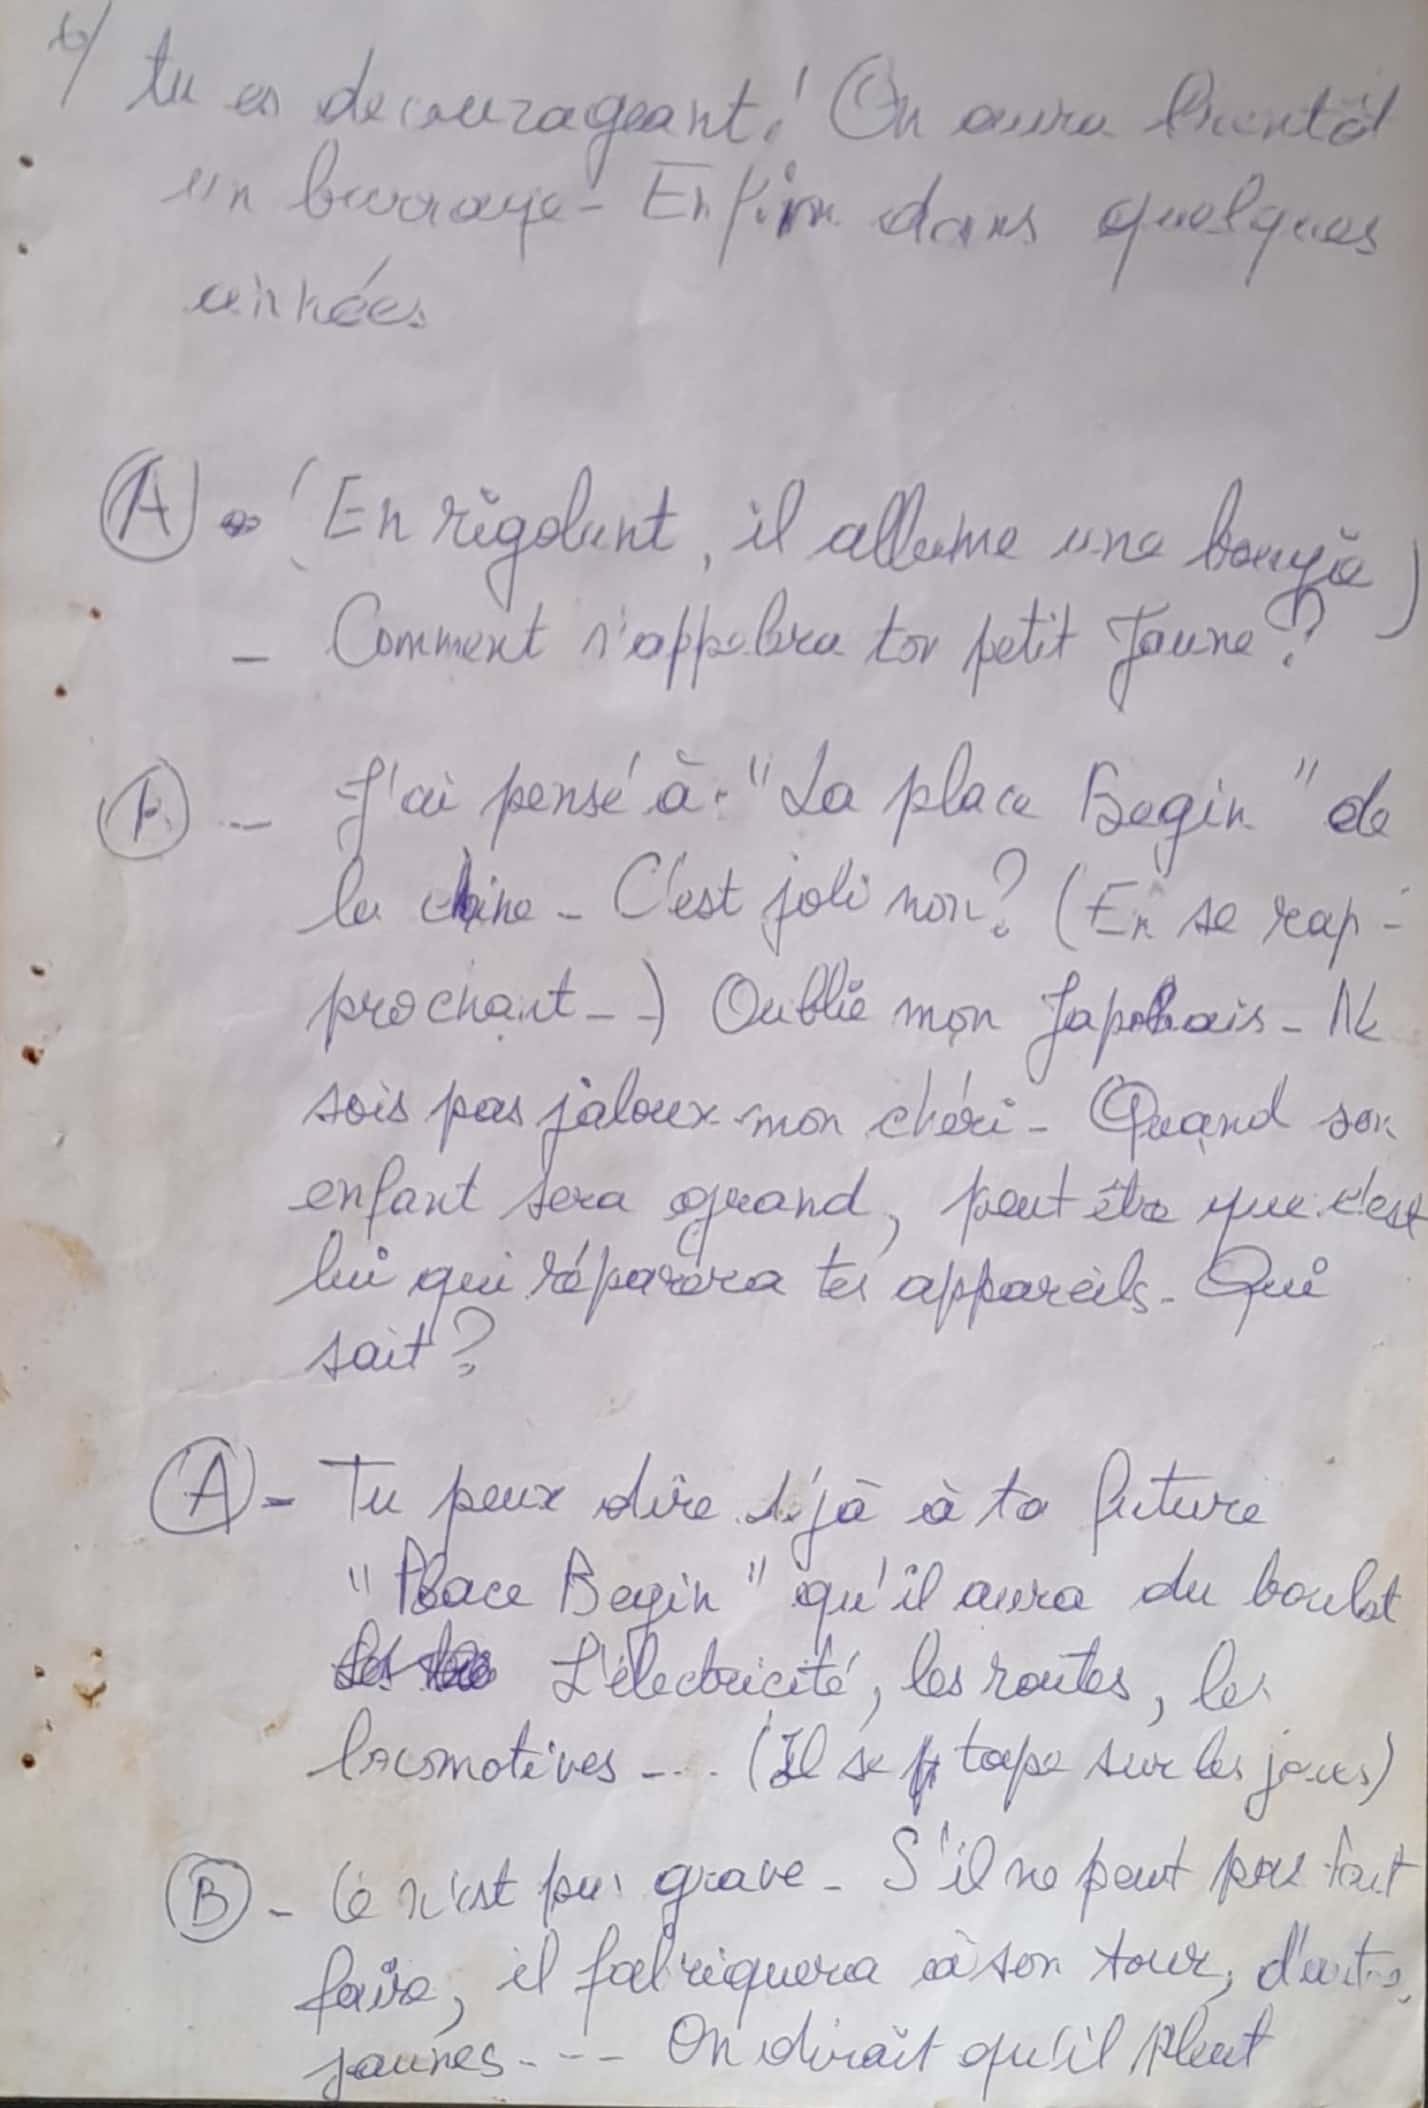 6/ tu es decourageant! On aura bientôt
un barrage - Enfin dans quelques
années
A - (En rigolant, il allume une bougie)
- Comment s'appelera ton petit Jaune?
B - J'ai pensé à "La place Begin" de
la chine - C'est joli non? (En se rap-
prochant--) Oublie mon Japonais - Ne
sois pas jaloux mon chéri - Quand son
enfant sera grand, peut être que c'est
lui qui réparera tes appareils - Qui
sait?
A - Tu peux dire déjà à ta future
"Place Begin" qu'il aura du boulot
L'électricité, les routes, les
locomotives --.. (Il se tape sur les joues)
B - Ce n'est pas grave - S'il ne peut pas tout
faire, il fabriquera à son tour, d'autres
jaunes ---- On dirait qu'il pleut